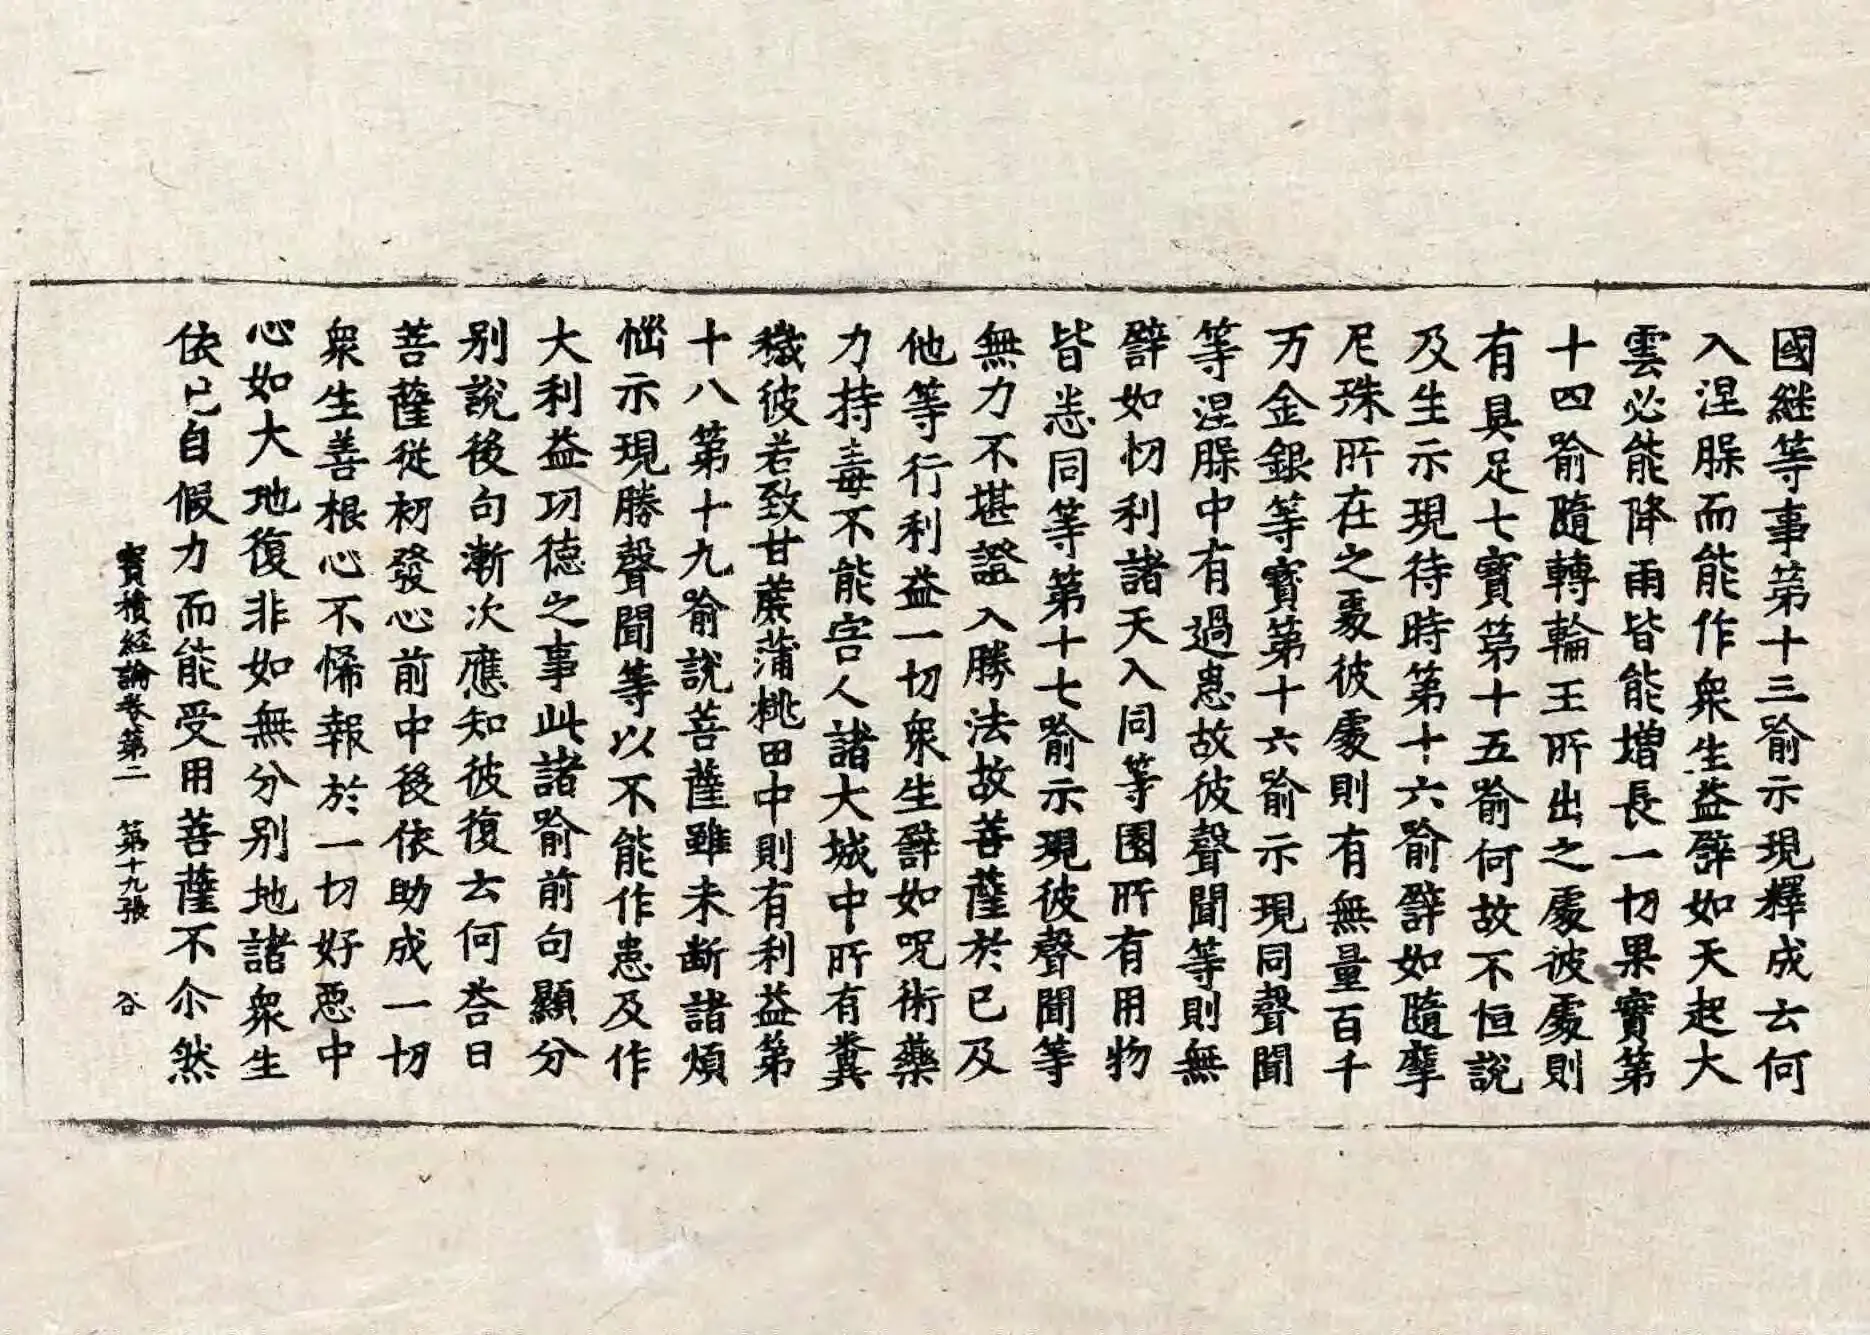 國継等事第十三喻示現釋成云何
入涅槃而能作衆生益譬如天起大
雲必能降雨皆能增長一切果實第
十四喻隨轉輪王所出之處彼處則
有具足七寶第十五喻何故不恒說
及生示現待時第十六喻譬如隨摩
尼珠所在之處彼處則有無量百千
万金銀等寶第十六喻示現同聲聞
等涅槃中有過患故彼聲聞等則無
譬如忉利諸天入同等園所有用物
皆悉同等第十七喻示現彼聲聞等
無力不堪證入勝法故菩薩於已及
他等行利益一切衆生譬如呪術藥
力持毒不能害人諸大城中所有糞
穢彼若致甘蔗蒲桃田中則有利益第
十八第十九喻說菩薩雖未斷諸煩
惱示現勝聲聞等以不能作患及作
大利益功德之事此諸喻前句顯分
别說後句漸次應知彼復云何荅曰
菩薩從初發心前中後依助成一切
衆生善根心不悕報於一切好惡中
心如大地復非如無分别地諸衆生
依已自假力而能受用菩薩不尒然
寶積經論卷第二 第十九張 谷